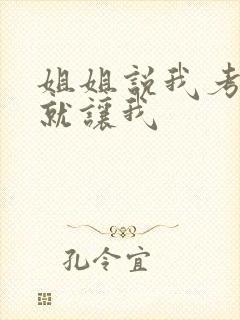 姐姐説我考
就讓我
孔令宜